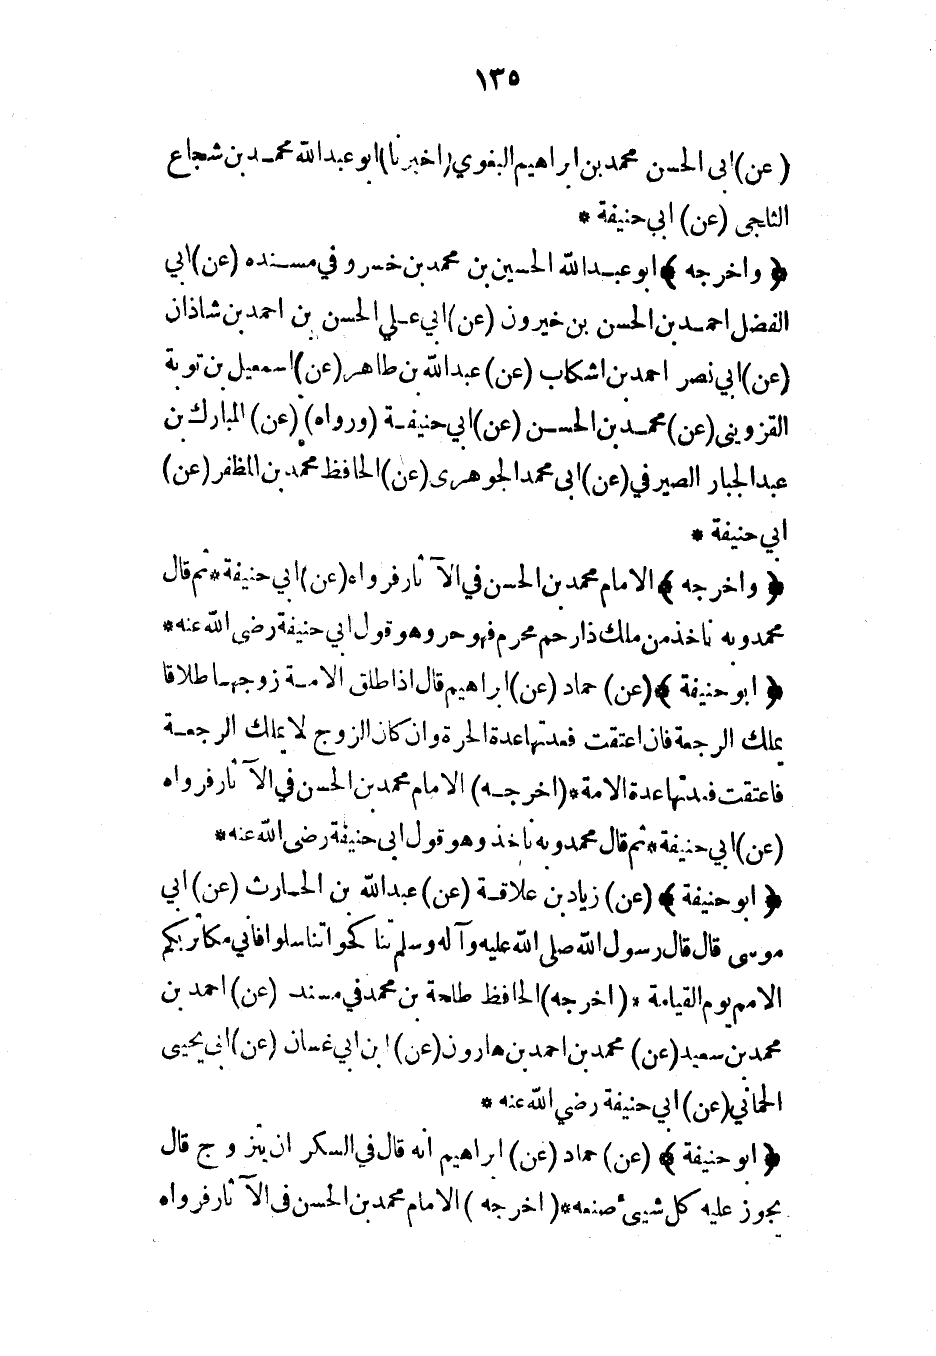 ١٣٥
(عن) ابى الحسن محمد بن ابراهيم البغوي (اخبرنا) ابو عبدالله محمد بن شجاع
الثلجى (عن) ابي حنيفة *
﴿ واخرجه ﴾ ابو عبدالله الحسين بن محمد بن خسرو في مسنده (عن) ابي
الفضل احمد بن الحسن بن خيرون (عن) ابي علي الحسن بن احمد بن شاذان
(عن) ابي نصر احمد بن اشكاب (عن) عبدالله بن طاهر (عن) اسمعيل بن توبة
القزوينى (عن) محمد بن الحسن (عن) ابي حنيفة (ورواه) (عن) المبارك بن
عبدالجبار الصيرفي (عن) ابى محمد الجوهرى (عن) الحافظ محمد بن المظفر (عن)
ابي حنيفة *
﴿ واخرجه ﴾ الامام محمد بن الحسن في الآثار فرواه (عن) ابي حنيفة * ثم قال
محمد وبه ناخذ من ملك ذا رحم محرم فهو حر وهو قول ابي حنيفة رضى الله عنه *
﴿ ابو حنيفة ﴾ (عن) حماد (عن) ابراهيم قال اذا طلق الامة زوجها طلاقا
يملك الرجعة فان اعتقت فعدتها عدة الحرة وان كان الزوج لا يملك الرجعة
فاعتقت فعدتها عدة الامة * (اخرجه) الامام محمد بن الحسن في الآثار فرواه
(عن) ابي حنيفة * ثم قال محمد وبه ناخذ وهو قول ابى حنيفة رضى الله عنه *
﴿ ابو حنيفة ﴾ (عن) زياد بن علاقة (عن) عبدالله بن الحارث (عن) ابي
موسى قال قال رسول الله صلى الله عليه وآله وسلم تناكحوا تناسلوا فاني مكاثر بكم
الامم يوم القيامة * (اخرجه) الحافظ طلحة بن محمد في مسنده (عن) احمد بن
محمد بن سعيد (عن) محمد بن احمد بن هارون (عن) ابن ابي غسان (عن) ابي يحيى
الحماني (عن) ابي حنيفة رضي الله عنه *
﴿ ابو حنيفة ﴾ (عن) حماد (عن) ابراهيم انه قال في السكران يتزوج قال
يجوز عليه كل شيئ صنعه * (اخرجه) الامام محمد بن الحسن في الآثار فرواه